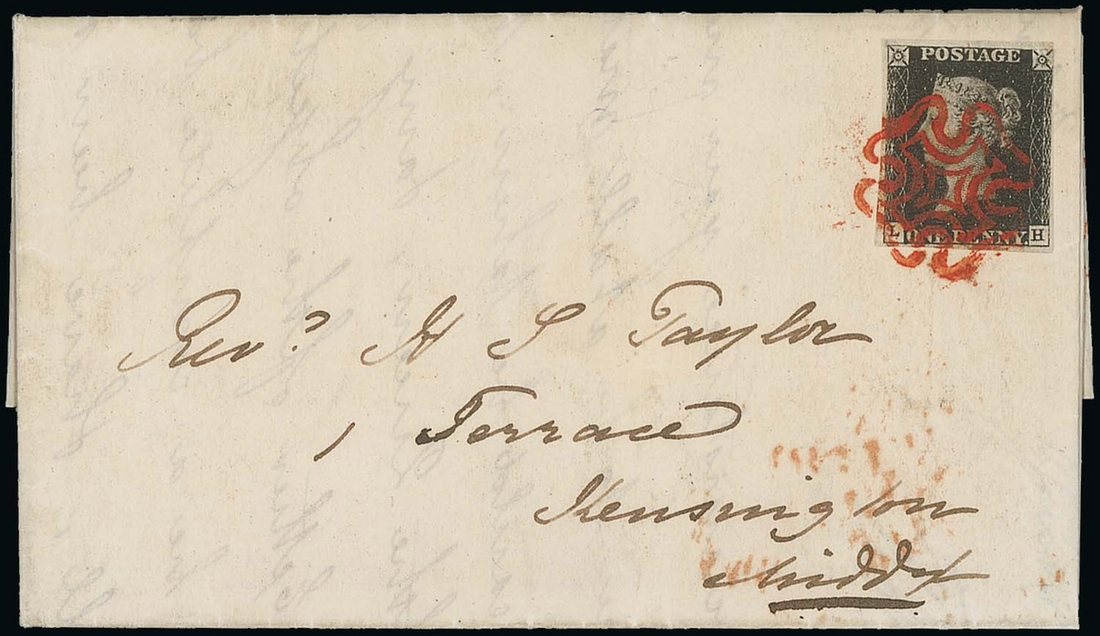 POSTAGE
L ONE PENNY. H
Revd. H S Taylor
1 Terrace
Kensington
Middx